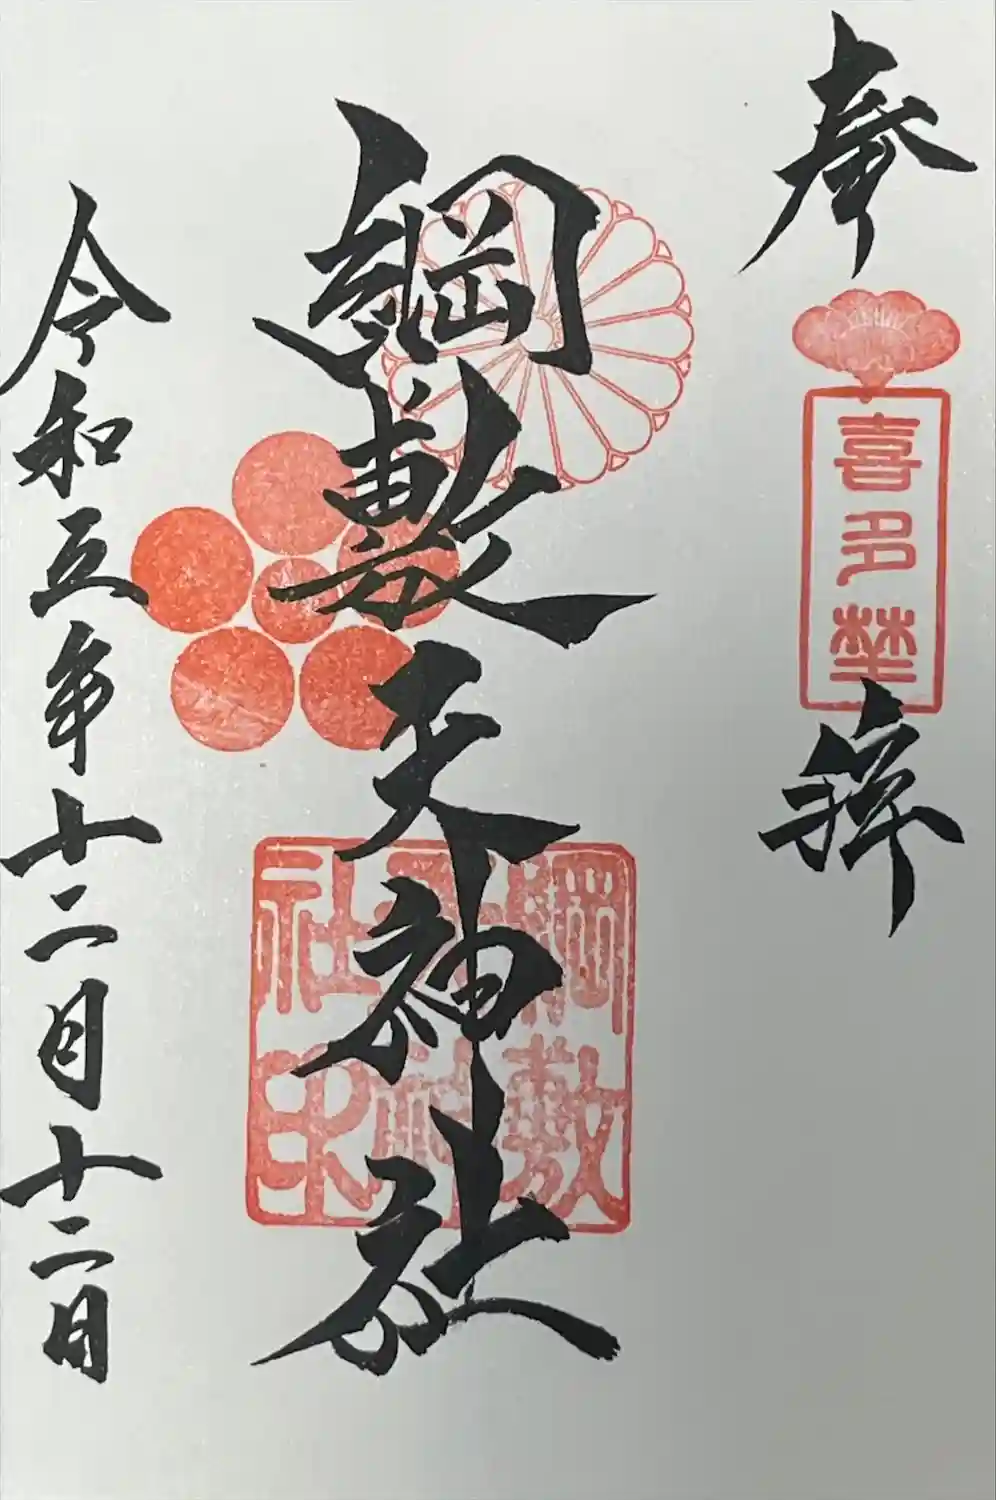 奉
喜多埜
拝
綱敷天神社
綱敷
天神
社印
令和五年十二月十二日